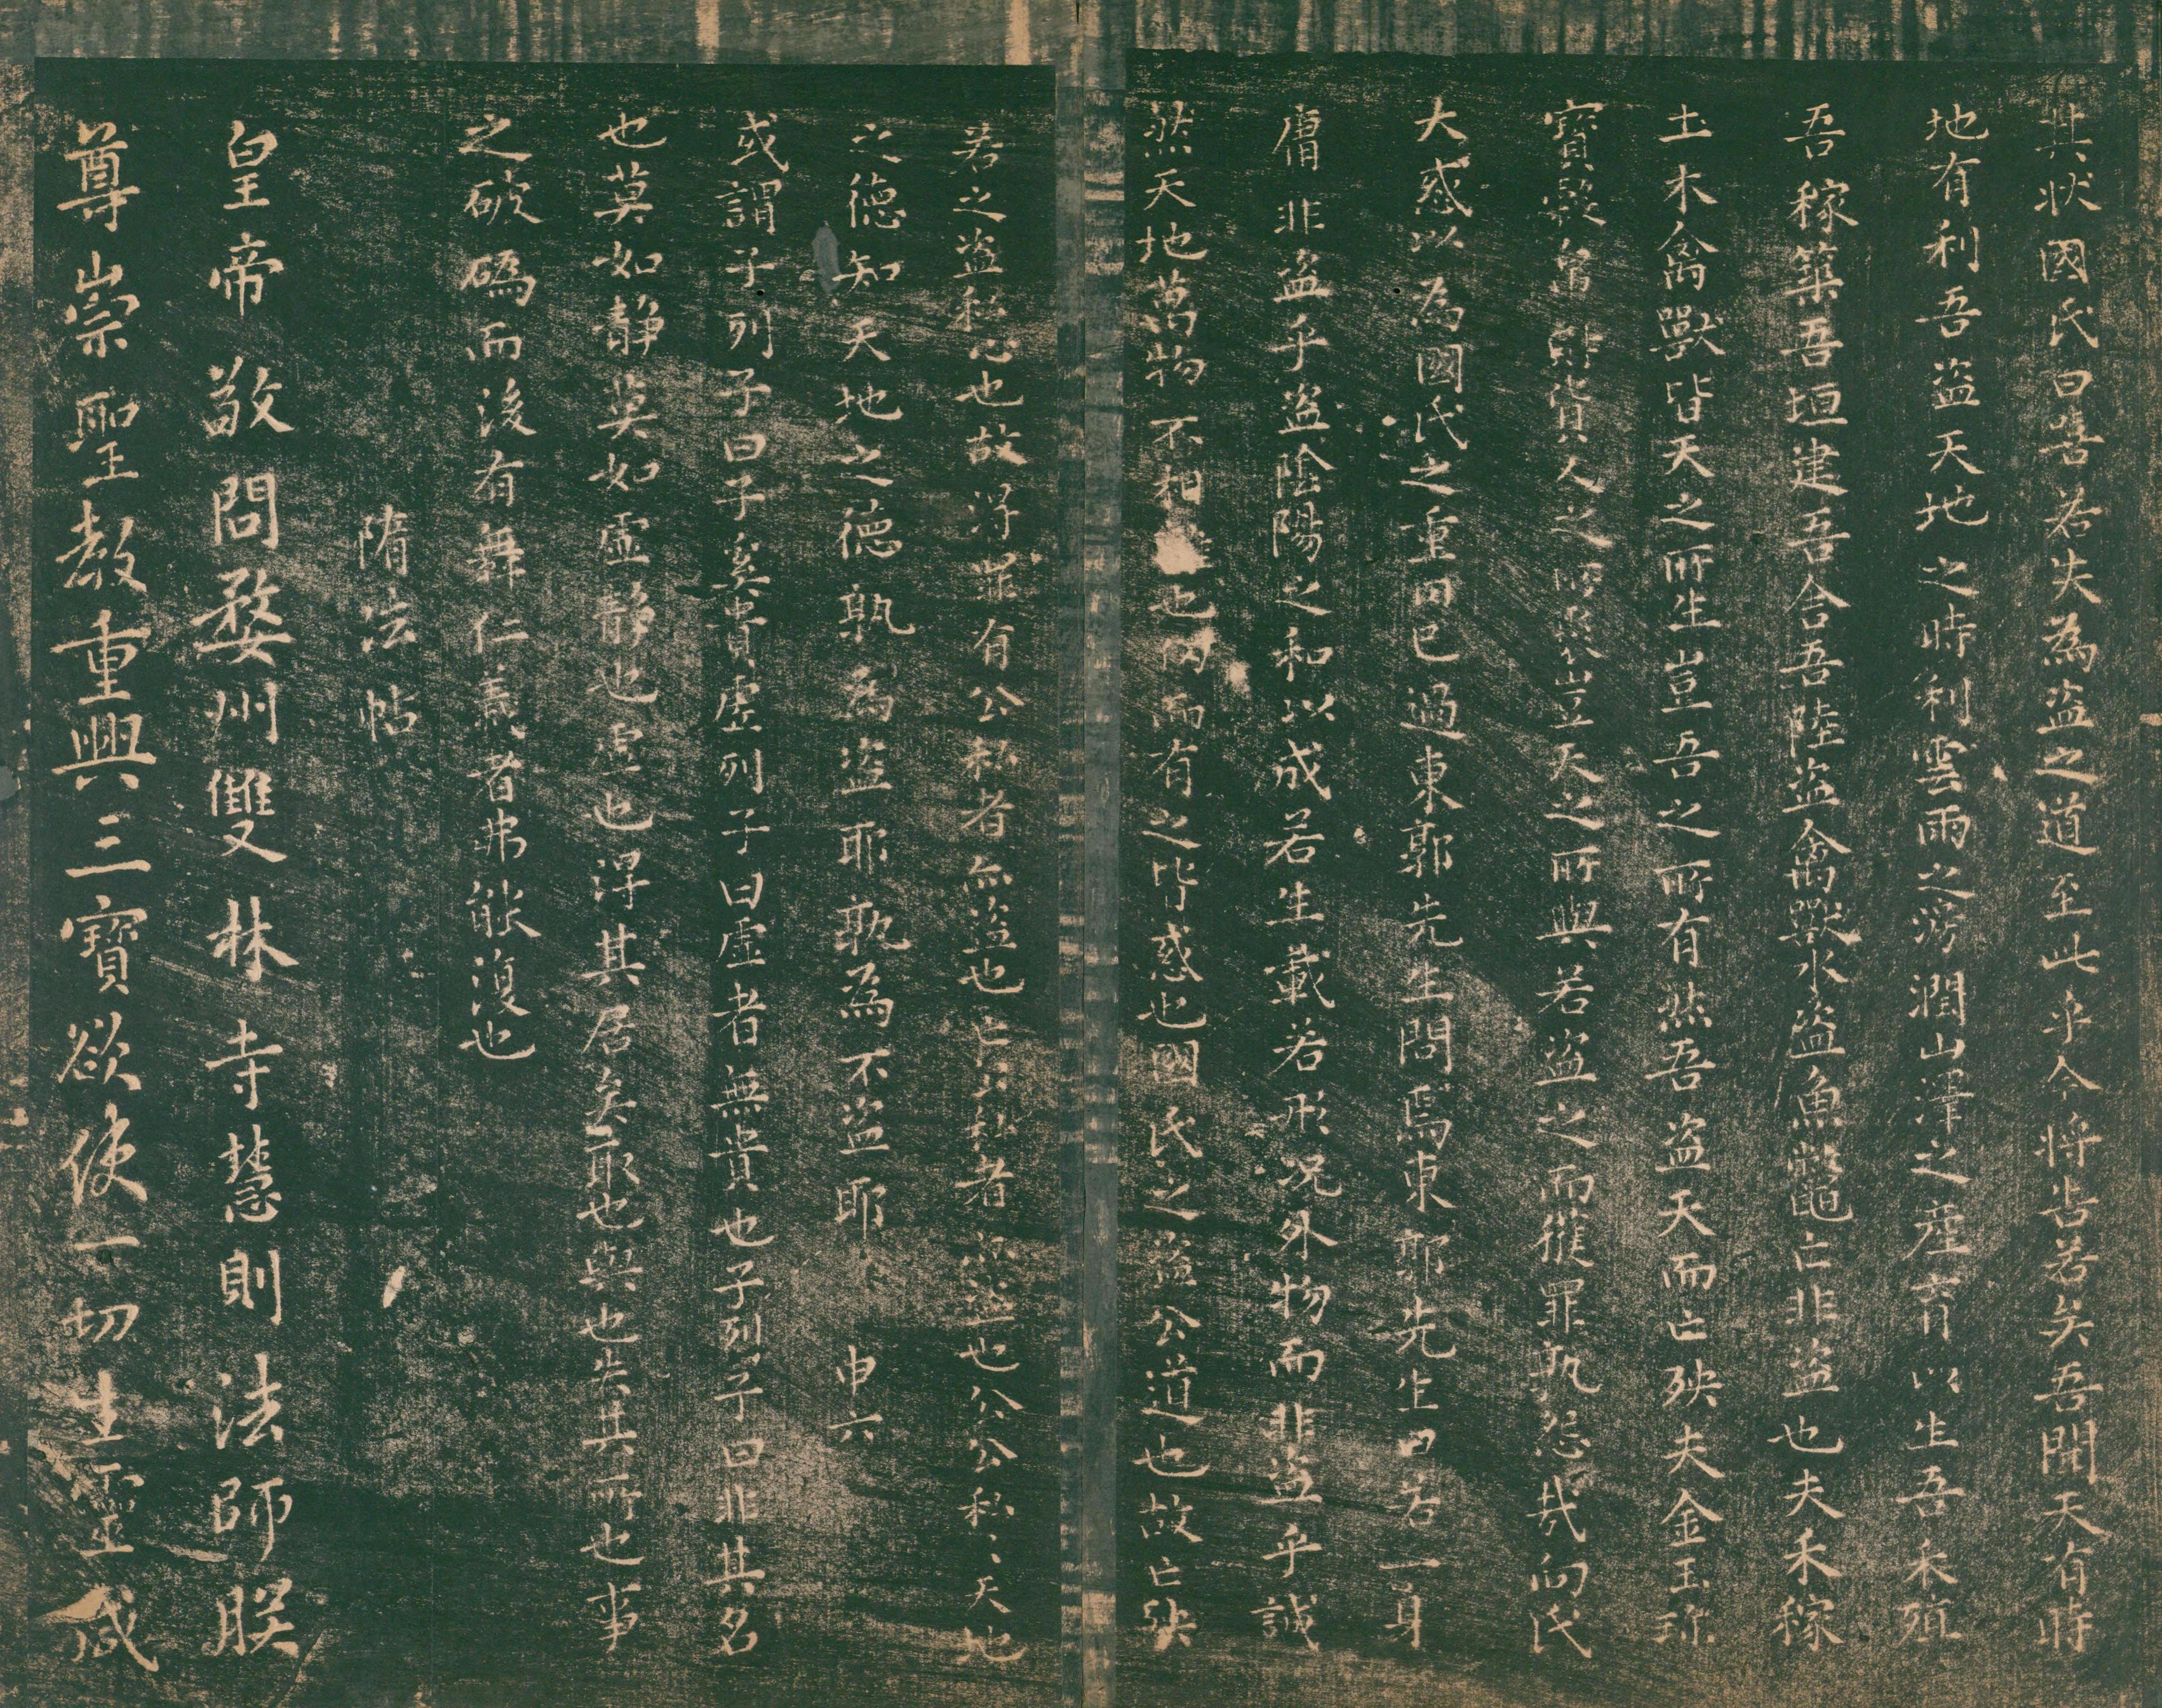 其状國氏曰嘻若失為盜之道至此乎今将告若矣吾聞天有時
地有利吾盜天地之時利雲雨之滂潤山澤之產育以生吾禾殖
吾稼築吾垣建吾舍吾陸盜禽獸水盜魚鼈亡非盜也夫禾稼
土木禽獸皆天之所生豈吾之所有然吾盜天而亡殃夫金玉珎
寶穀帛財貨人之所聚豈天之所與若盜之而罹罪孰怨哉向氏
大惑以為國氏之重罔已過東郭先生問焉東郭先生曰若一身
庸非盜乎盜陰陽之和以成若生載若形况外物而非盜乎誠
然天地萬物不相也而有之皆惑也國氏之盜公道也故亡殃
若之盜私心也故得罪有公私者亦盜也亡公私者亦盜也公公私〻天地
之德知天地之德孰為盜耶孰為不盜耶 申六
或謂子列子曰子奚貴虛列子曰虛者無貴也子列子曰非其名
也莫如靜莫如虛靜也虛也得其居矣取也與也失其所也事
之破䃣而後有舞仁義者弗能復也
隋法帖
皇帝敬問婺州雙林寺慧則法師朕
尊崇聖教重興三寶欲使一切生靈咸